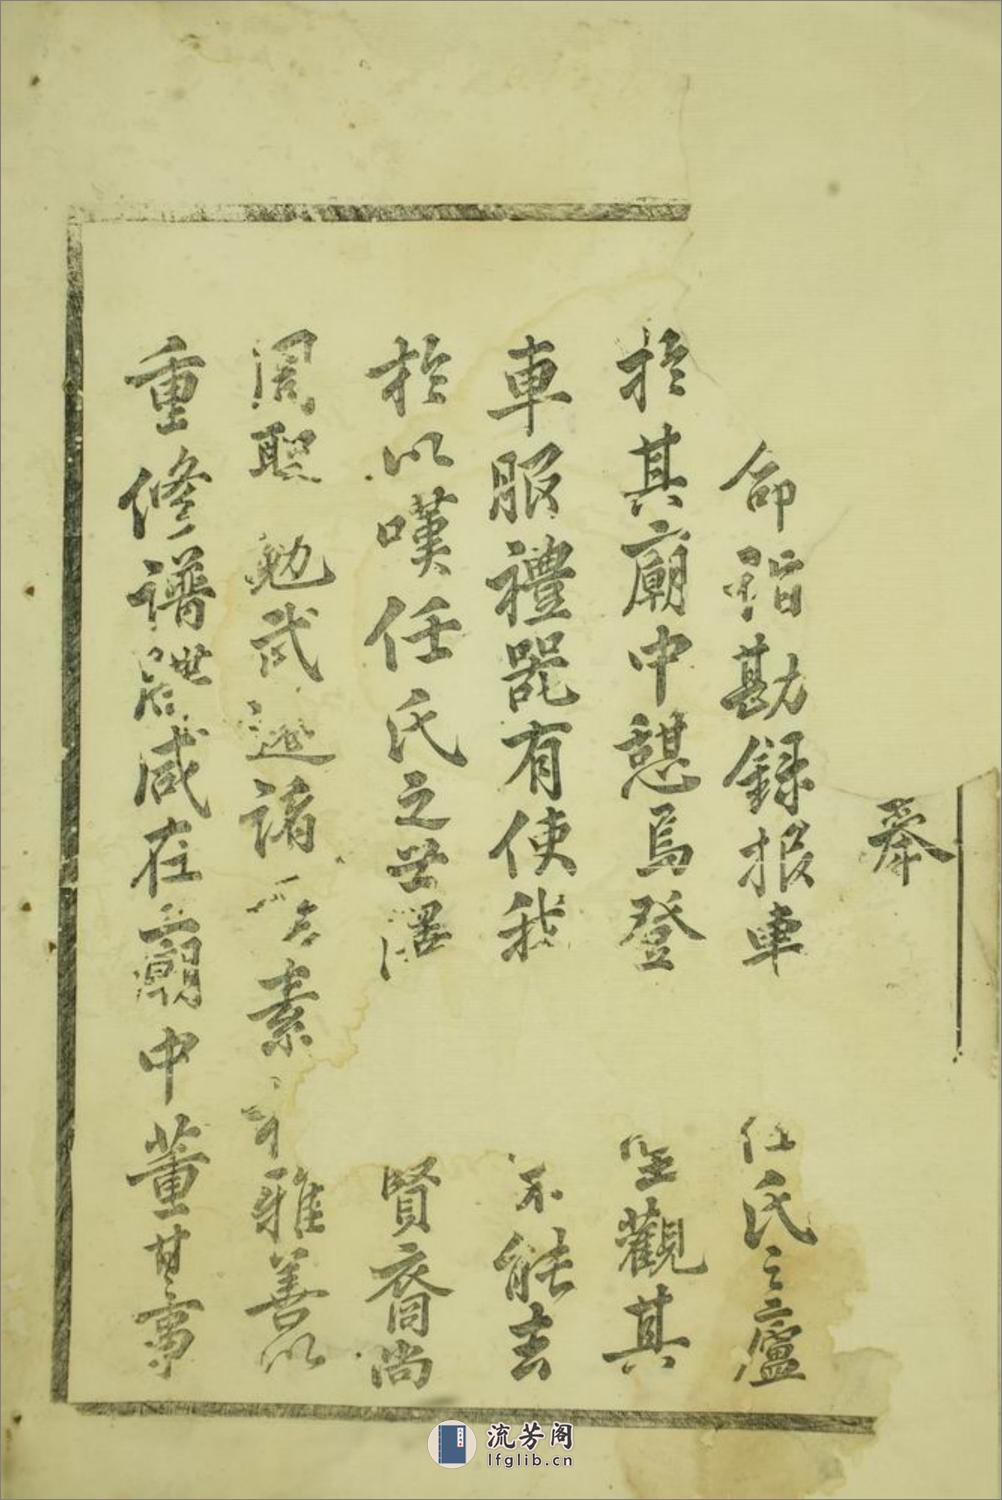 奉
命詣勘錄報車任氏之廬
於其廟中憩焉登堂觀其
車服禮器有使我不能去
於以嘆任氏之世澤賢裔尚
周聖勉武遜諸素雅善以
重修譜咸在廟中董其事
流芳阁
lfglib.cn